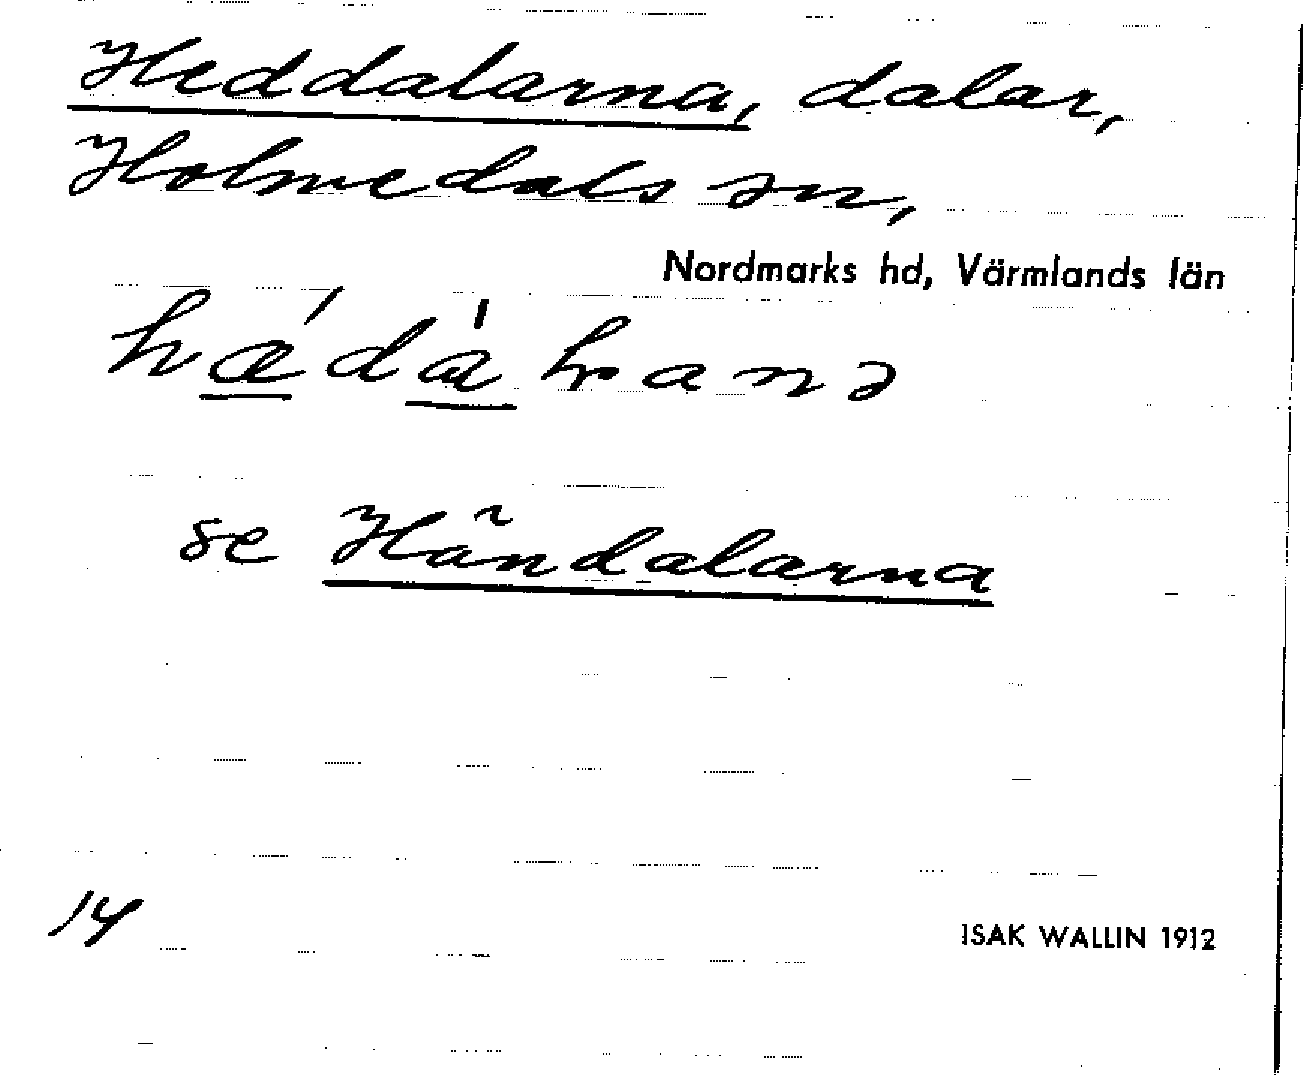 Heddalarna, dalar,
Holmedals sn,
Nordmarks hd, Värmlands län
se Händalarna
14
ISAK WALLIN 1912